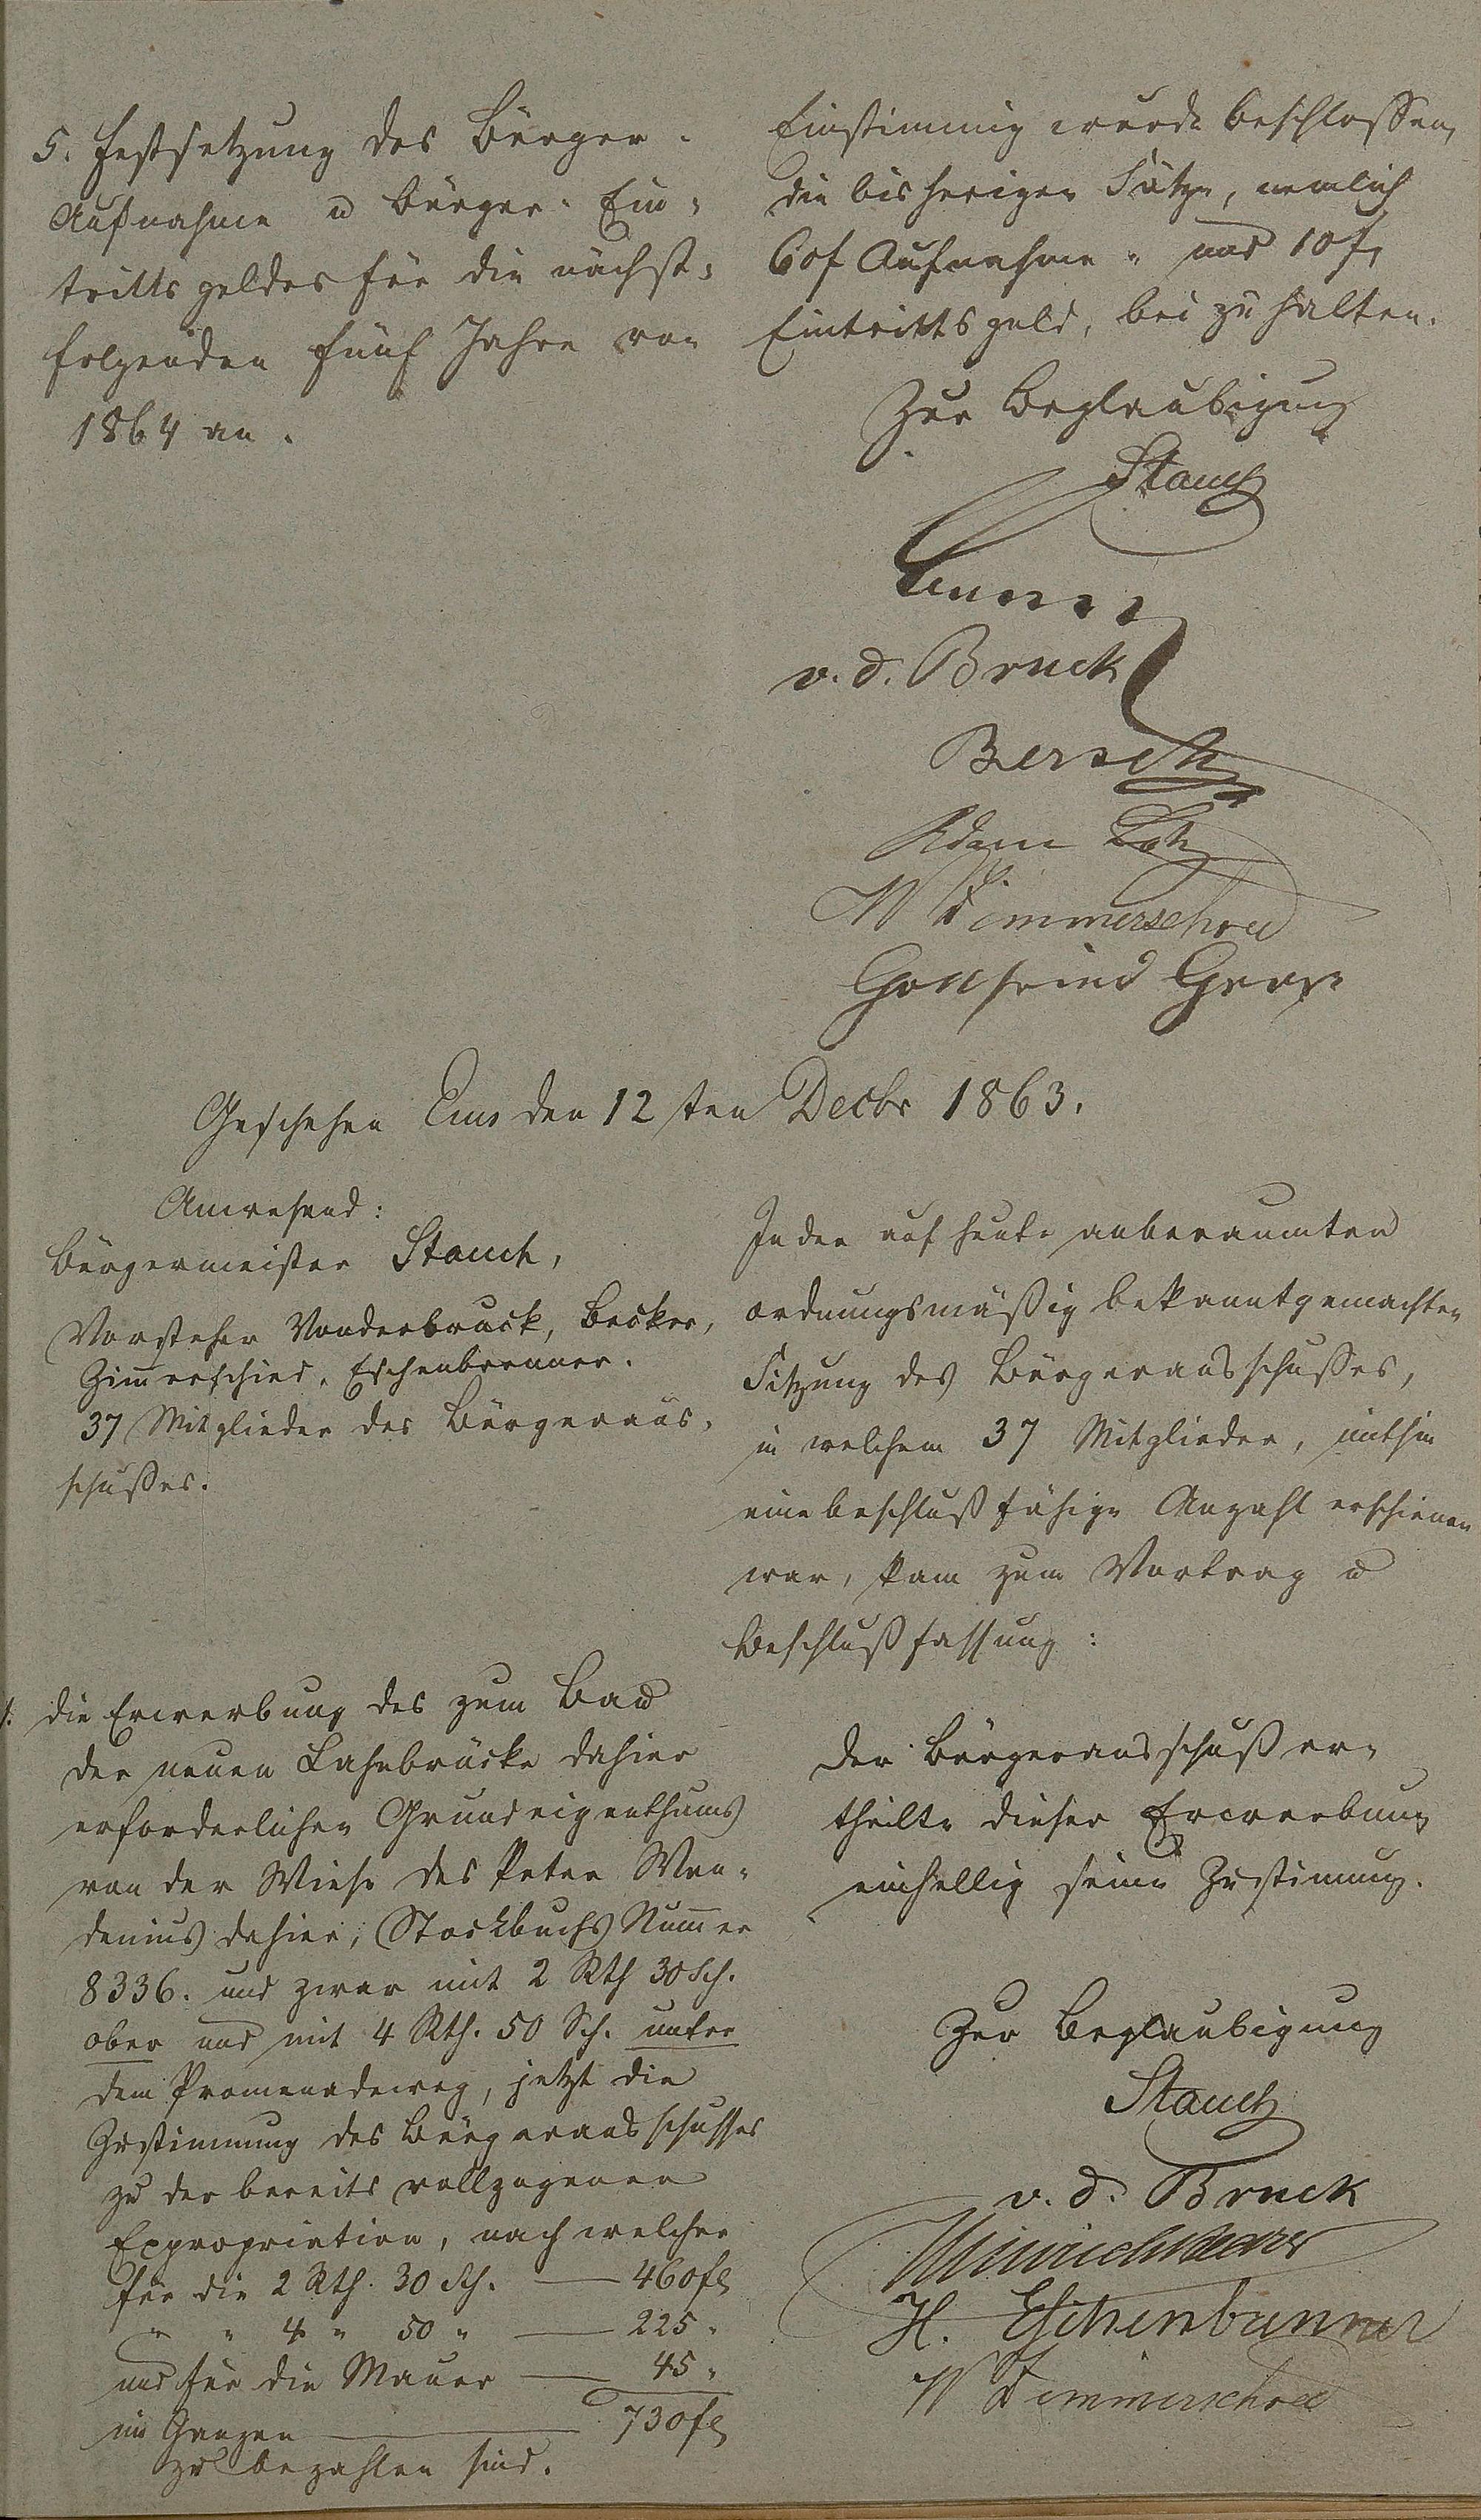 5. Festsetzung des Bürger-
Aufnahme u Bürger-Ein-
trittsgeldes für die nächst-
folgenden fünf Jahre von
1864 an.
Einstimmig wurde beschlossen,
die bisherigen Sätze, nemlich
60 f Aufnahme- und 10 f,
Eintrittsgeld, bei zu halten.
Zur Beglaubigung
Stauch
v. d. Bruck
Bersch
Adam
W Zimmerschied
Gottfried
Geschehen Ems den 12ten Decbr 1863.
Anwesend:
Bürgermeister Stauch,
Vorsteher Vonderbruck, Becker,
Zimerschied, Eschenbrenner.
37 Mitglieder des Bürgeraus-
schußes.
In der auf heute anberaumten
ordnungsmäßig bekanntgemachten
Sitzung des Bürgerausschußes,
in welchem 37 Mitglieder, mithin
eine beschlußfähige Anzahl erschienen
war, kam zum Vortrag u
Beschlußfassung:
1. die Erwerbung des zum Bau
der neuen Lahnbrücke dahier
erforderlichen Grundeigenthums
von der Wiese des Peter Wen-
denius dahier, Stockbuchs Numer
8336. und zwar mit 2 Rth 30 Sch.
ober und mit 4 Rth. 50 Sch. unter
dem Promenadeweg, jetzt die
Zustimmung des Bürgerausschusses
zu der bereits vollzogenen
Expropriation, nach welcher
für die 2 Rth. 30 Sch. — 460 fl
" " 4 " 50 " — 225 "
und für die Mauer — 45 "
im Ganzen — 730 fl
zu bezahlen sind.
Der Bürgerausschuß er-
theilte dieser Erwerbung
einhellig seine Zustimung.
Zur Beglaubigung
Stauch
v. d. Bruck
H. Eschenbrenner
W Zimmerschied